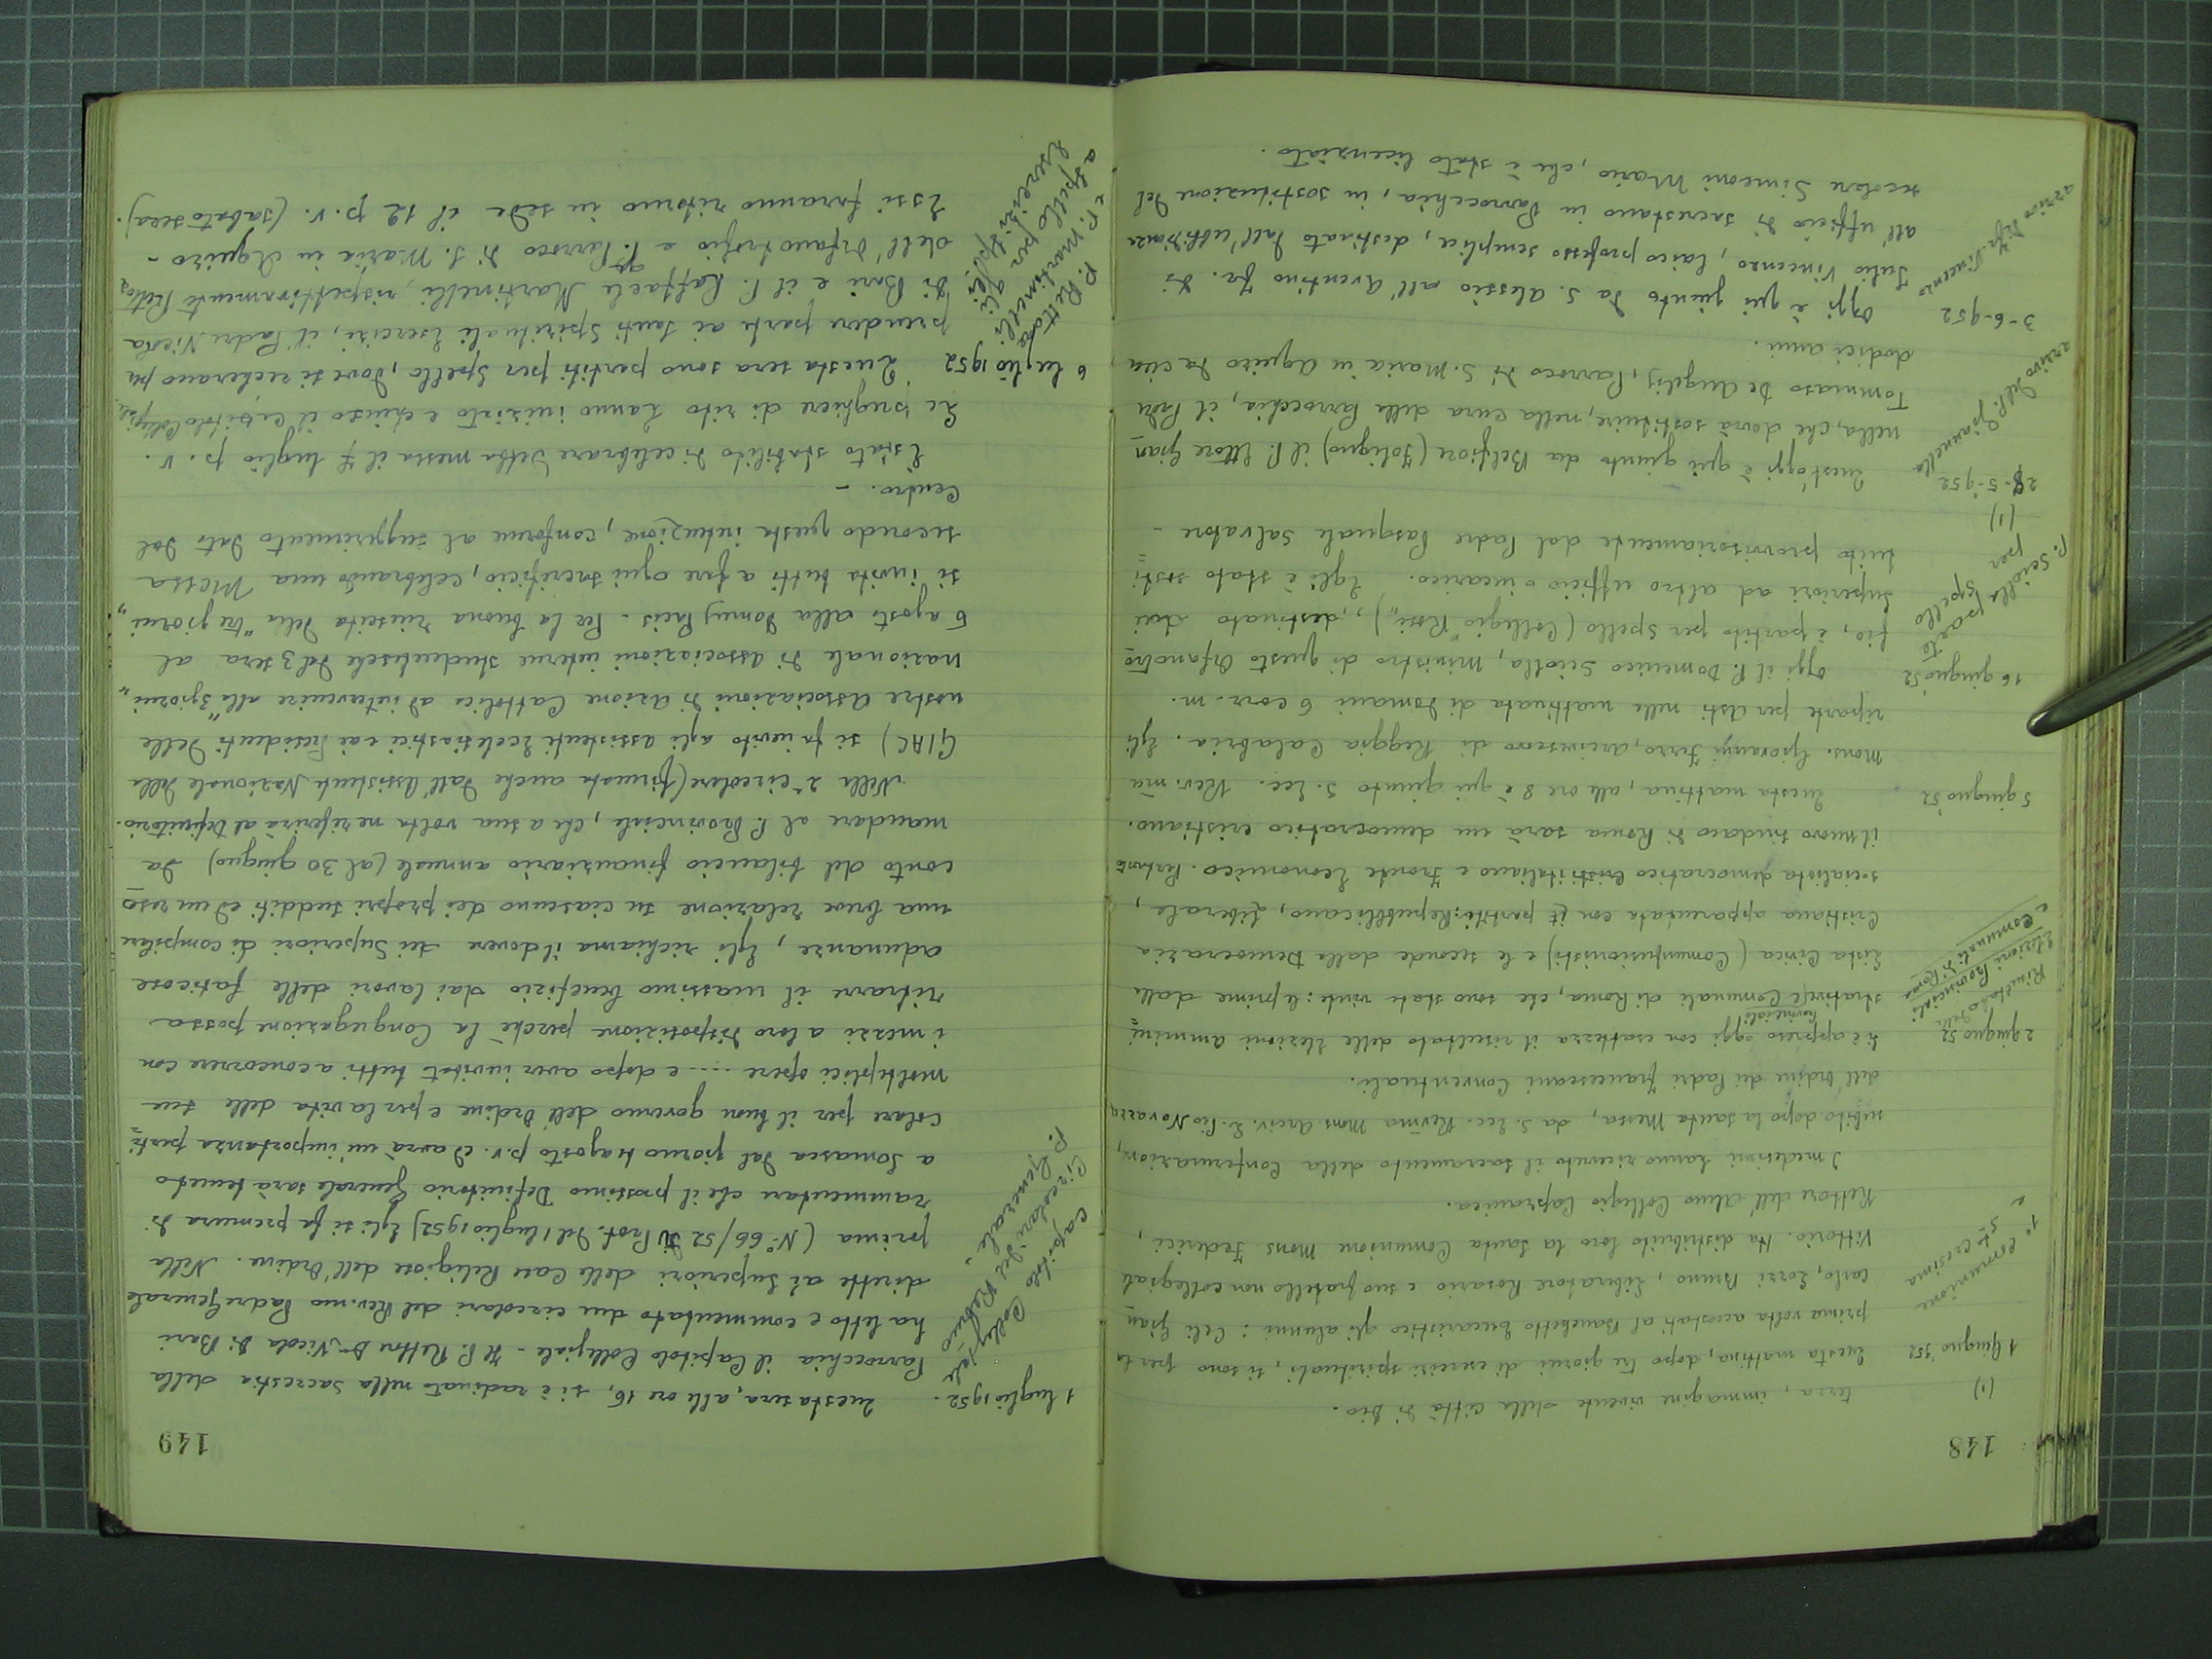 148
(1) terra, immagine vivente della città di Dio.
1 giugno '952 Questa mattina, dopo tre giorni di esercizi spirituali, si sono per la
1ª Comunione prima volta accostati al Banchetto Eucaristico gli alunni: Celi Gian
e S. Cresima Carlo, Zozzi Bruno, Liberatore Rosario e suo fratello non collegiale
Vittorio. Ha distribuito loro la Santa Comunione Mons Federici,
Rettore dell'Almo Collegio Capranica.
I medesimi hanno ricevuto il sacramento della Confermazione,
subito dopo la Santa Messa, da S. Ecc. Rev.ma Mons. Arciv. L. Pio Novazza
dell'Ordine dei Padri Francescani Conventuali.
2 giugno 52 Si è appreso oggi con esattezza il risultato delle elezioni ammini
Risultato delle strative Provinciali Comunali di Roma, che sono state vinte: le prime dalla
Elezioni Provinciali Lista Civica (Comunfusionisti) e le seconde dalla Democrazia
e Comunali di Roma Cristiana apparentata con i partiti: Repubblicano, Liberale,
socialista democratico italiano e Fronte Economico. Pertanto
il nuovo sindaco di Roma sarà un democratico cristiano.
5 giugno 52 Questa mattina, alle ore 8 è qui giunto S. Ecc. Rev.ma
Mons. Giovanni Ferro, arcivescovo di Reggio Calabria. Egli
riparte per Asti nella mattinata di domani 6 corr. m.
16 giugno 52 Oggi il P. Domenico Sciolla, ministro di questo Orfanotro
P. Sciolla parte fio, è partito per Spello (Collegio "Rossi"), destinato dai
per Spello Superiori ad altro ufficio o incarico. Egli è stato sosti
(1) tuito provvisoriamente dal Padre Pasquale Salvatore -
28-5-952 Quest'oggi è qui giunto da Belfiore (Foligno) il P. Ettore Gian
arrivo del P. Giannella nella, che dovrà sostituire, nella cura della Parrocchia, il Padre
Tommaso De Angelis, Parroco di S. Maria in Aquiro da circa
dodici anni.
3-6-952 Oggi è qui giunto da S. Alessio all'Aventino Fr. Di
arrivo di fr. Vincenzo Tullio Vincenzo, laico professo semplice, destinato dall'ubbidienza
all'ufficio di sacrestano in Parrocchia, in sostituzione del
secolare Simeoni Mario, che è stato licenziato.
149
1 luglio 1952. Questa sera, alle ore 16, si è radunato nella sacrestia della
Capitolo Collegiale Parrocchia il Capitolo Collegiale - Il P. Rettore D. Nicola Di Bari
Circolari del Rev.mo ha letto e commentato due circolari del Rev.mo Padre Generale
P. Generale. dirette ai Superiori delle Case Religiose dell'Ordine. Nella
prima (N.° 66/52 di Prot. del 1 luglio 1952) Egli si fa premura di
rammentare che il prossimo Definitorio Generale sarà tenuto
a Somasca dal giorno 4 agosto p.v. ed avrà un'importanza parti
colare per il buon governo dell'Ordine e per la vita delle sue
molteplici opere .... e dopo aver invitat tutti a concorrere con
i mezzi a loro disposizione perchè la Congregazione possa
ritrarre il massimo beneficio dai lavori delle faticose
adunanze, Egli richiama il dovere dei Superiori di compilare
una breve relazione su ciascuno dei propri sudditi ed un reso
conto del bilancio finanziario annuale (al 30 giugno) da
mandare al P. Provinciale, che a sua volta ne riferirà al Definitorio.
Nella 2ª circolare (firmata anche dall'Assistente Nazionale della
GIAC) si fa invito agli assistenti Ecclesiastici e ai Presidenti delle
nostre Associazioni di Azione Cattolica ad intervenire alla "3 giorni"
nazionale di Associazioni interne studentesche dal 3 sera al
6 agosto alla Domus Pacis - Per la buona riuscita della "tre giorni"
si invita tutti a fare ogni sacrificio, celebrando una Messa
secondo questa intenzione, conforme al suggerimento dato dal
Centro. -
È stato stabilito di celebrare detta messa il 7 luglio p. v.
Le preghiere di rito hanno iniziato e chiuso il Capitolo Collegiale.
6 luglio 1952 Questa sera sono partiti per Spello, dove si recheranno per
P. Rettore prendere parte ai Santi Spirituali Esercizi, il Padre Nicola
e P. Martinelli Di Bari e il P. Raffaele Martinelli, rispettivamente Rettore
a Spello per gli dell'Orfanotrofio e P. Parroco di S. Maria in Aquiro -
esercizi spli. Essi faranno ritorno in sede il 12 p. v. (sabato sera).